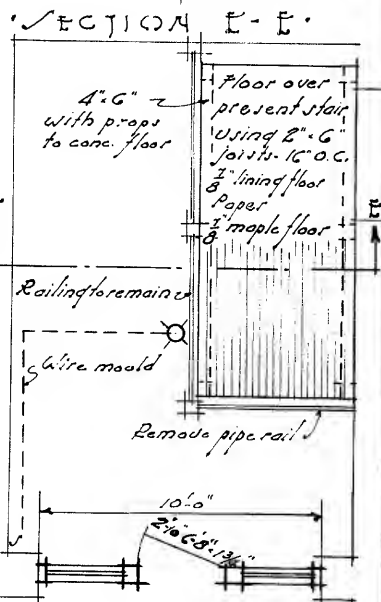 SECTION E-E
4"×6"
with props
to conc. floor
Floor over
present stair
using 2"×6"
joists-16" O.C.
7/8" lining floor
Paper
7/8" maple floor
E
Railing to remain
Wire mould
Remove pipe rail
10'-0"
2'-10"×6'-8"×1 3/4"